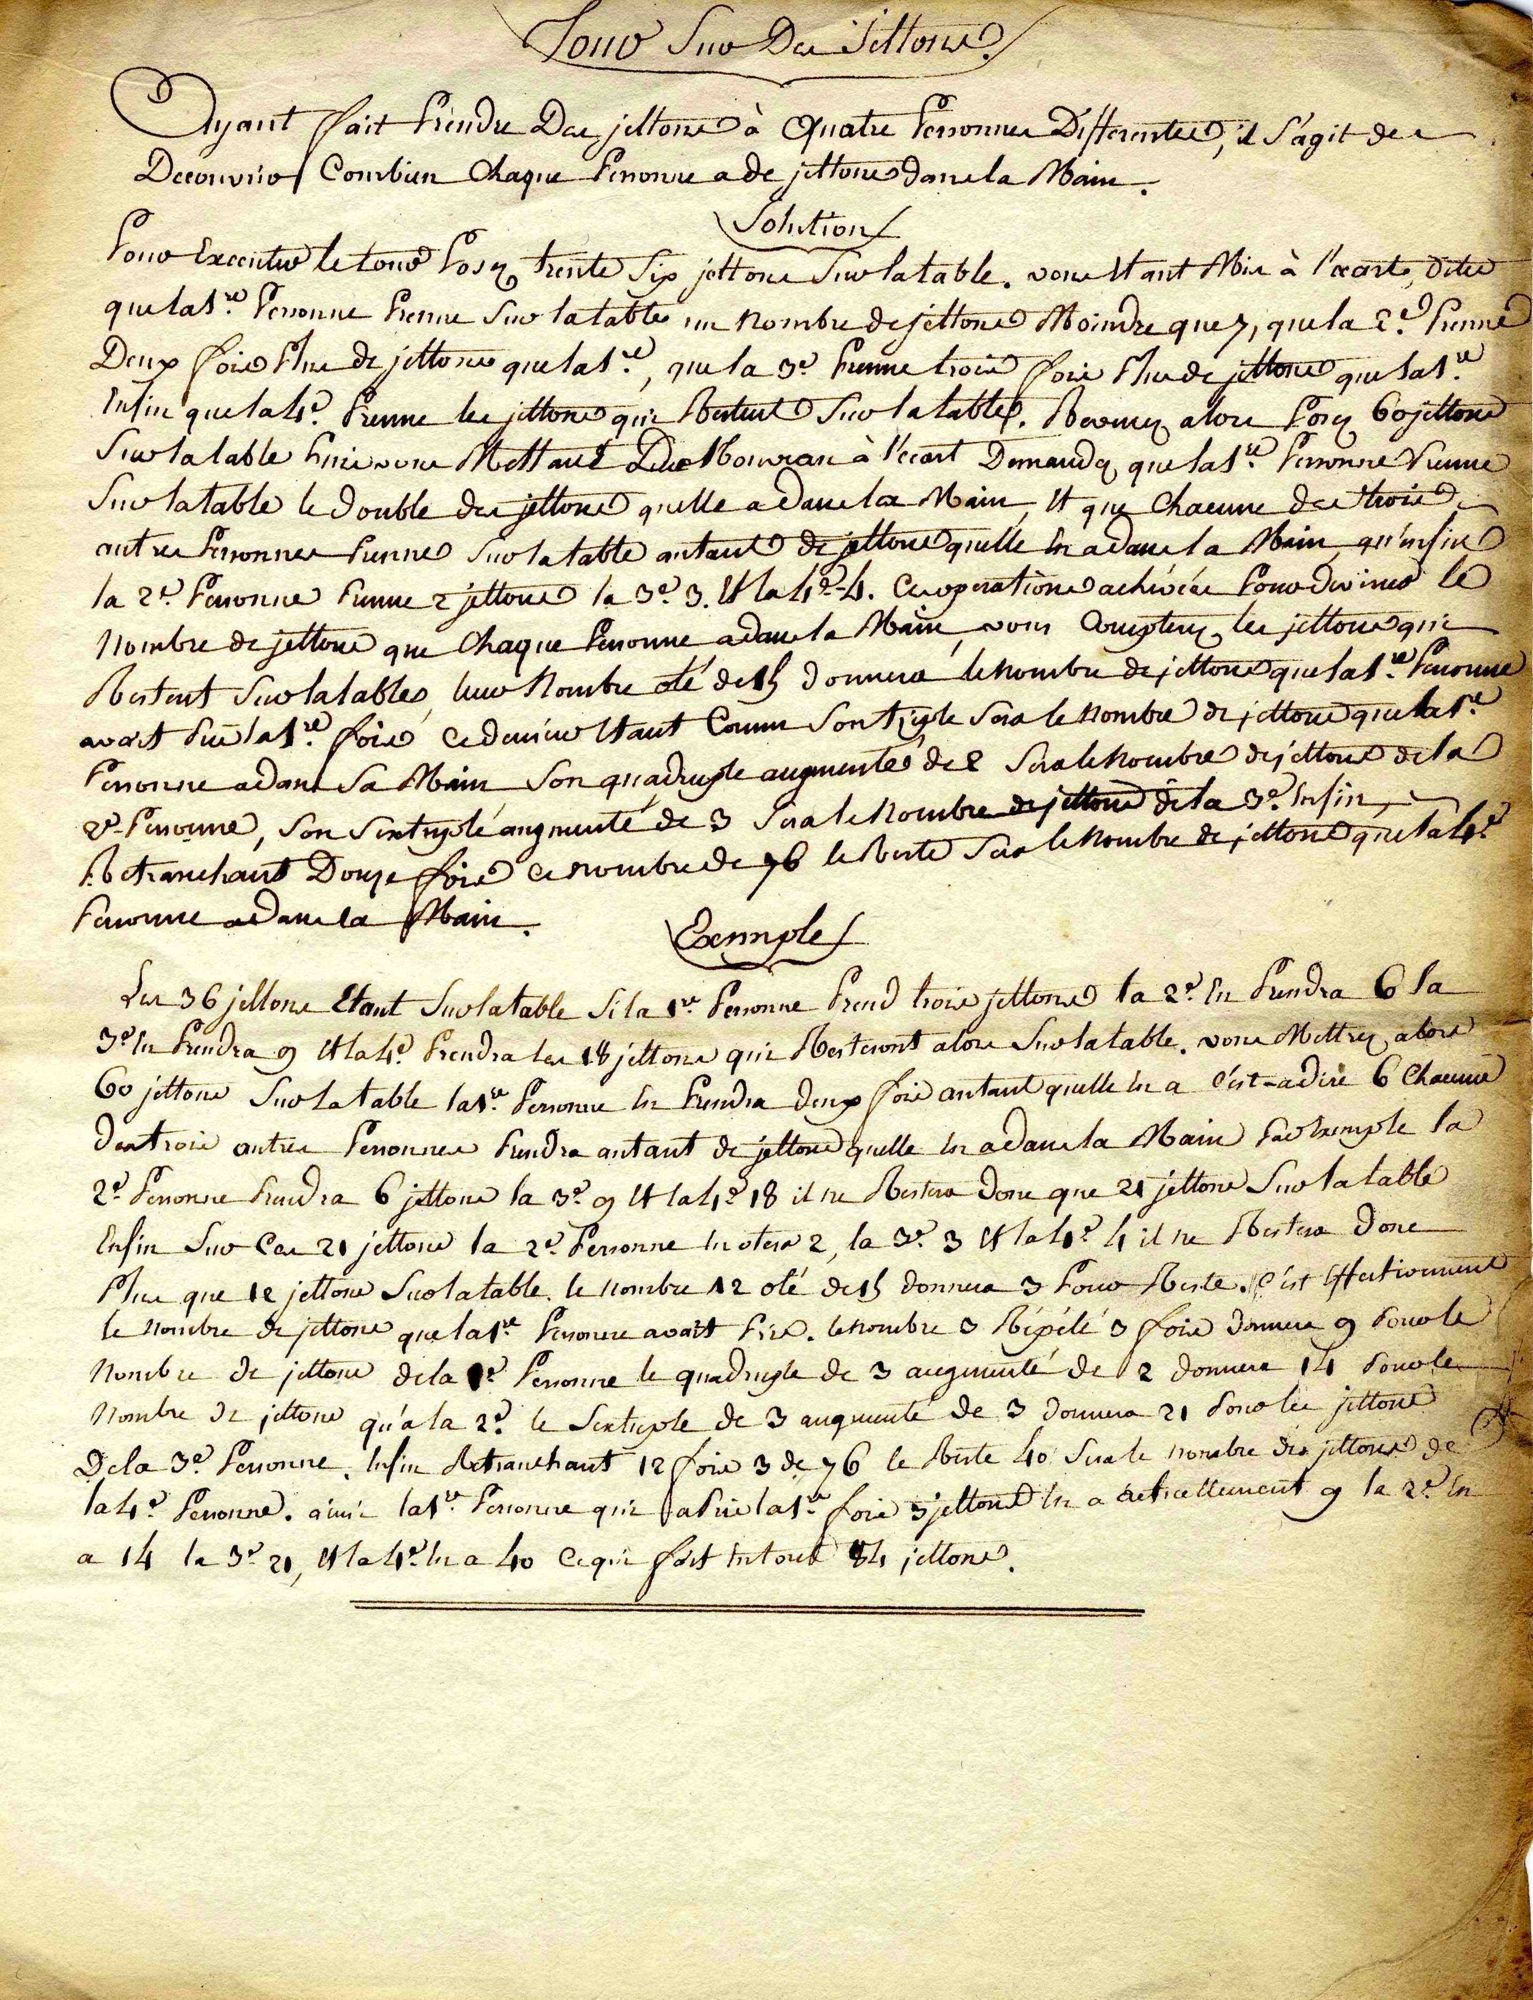 Tour Sur Des Jettons.
Ayant fait Prendre Des jettons à Quatre Personnes Differentes, il s'agit de
Decouvrir Combien Chaque Personne a de jettons dans la Main.
Solution
Pour Executer le tour Posez trente Six jettons Sur la table. vous Etant Mis à l'ecart, dites
que la 1re. Personne Prenne Sur la table un nombre de jettons Moindre que 7, que la 2e. Prenne
Deux fois Plus de jettons que la 1re, que la 3e Prenne trois fois Plus de jettons que la 1re.
Enfin que la 4e. Prenne les jettons qui Restent Sur la table. Revenez alors Posez 60 jettons
Sur la table Puis vous Mettant De Nouveau à l'ecart Demandez que la 1re. Personne Prenne
Sur la table le double des jettons quelle a dans la Main, Et que Chacune des trois
autres Personnes Prenne Sur la table autant de jettons quelle En a dans la Main, qu'Enfin
la 2e. Personne Prenne 2 jettons la 3e. 3. Et la 4e. 4. Ces operations achevées Pour deviner le
Nombre de jettons que Chaque Personne a dans la Main, vous Compterez les jettons qui
Restent Sur la table, leur Nombre oté de 15 donnera le nombre de jettons que la 1re. Personne
avoit Pris la 1re. fois Ce dernier Etant Connu Son triple Sera le Nombre de jettons que la 1re
Personne a dans Sa Main Son quadruple augmenté de 2 Sera le Nombre de jettons de la
2e. Personne, Son Sextuple augmenté de 3 Sera le Nombre de jettons de la 3e. Enfin
Retranchant Douze fois Ce nombre de 76 le Reste Sera le Nombre de jettons que la 4e
Personne a dans la Main.
Exemple
Les 36 jettons Etant Sur la table Si la 1re Personne Prend trois jettons la 2e. En Prendra 6 la
3e. En Prendra 9 Et la 4e. Prendra les 18 jettons qui Resteront alors Sur la table. vous Mettrez alors
60 jettons Sur la table la 1re. Personne En Prendra deux fois autant quelle En a C'est-a-dire 6 Chacune
des trois autres Personnes Prendra autant de jettons quelle En a dans la Main Par Exemple la
2e. Personne Prendra 6 jettons la 3e. 9 Et la 4e. 18 il ne Restera donc que 21 jettons Sur la table
Enfin Sur Ces 21 jettons la 2e. Personne En otera 2, la 3e. 3 Et la 4e. 4 il ne Restera donc
Plus que 12 jettons Sur la table. le nombre 12 oté de 15 donnera 3 Pour Reste. C'est Effectivement
le nombre de jettons que la 1re. Personne avoit Pris. le nombre 3 Répété 3 fois donnera 9 Pour le
Nombre de jettons de la 1e Personne le quadruple de 3 augmenté de 2 donnera 14 Pour le
Nombre de jettons qu'a la 2e. le Sextuple de 3 augmenté de 3 donnera 21 Pour les jettons
De la 3e. Personne. Enfin Retranchant 12 fois 3 de 76 le Reste 40 Sera le nombre des jettons de
la 4e. Personne. ainsi la 1re. Personne qui a Pris la 1re fois 3 jettons En a actuellement 9 la 2e. En
a 14 la 3e. 21, Et la 4e. En a 40 Ce qui fait En tout 84 jettons.